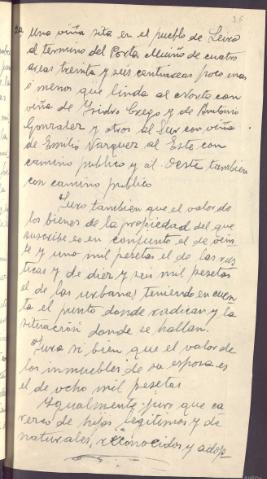 una viña sita en el pueblo de Leiro
al termino del Porta Muiño de cuatro
areas treinta y seis centiareas poco mas
o menor que linda al Norte con
viña de Isidro Crego y de Antonio
Gonzalez y otros al Sur con viña
de Emilio Vazquez al Este con
camino publico y al Oeste tambien
con camino publico
Juro tambien que el valor de
los bienes de la propiedad del que
suscribe es en conjunto el de vein-
te y uno mil pesetas el de las rus-
ticas y de diez y seis mil pesetas
el de las urbanas teniendo en cuen-
ta el punto donde radican y la
situación donde se hallan.
Juro si bien que el valor de
los inmuebles de su esposa es
el de ocho mil pesetas
Igualmente juro que ca
rezco de hijos legitimos y de
naturales, reconocidos y adop